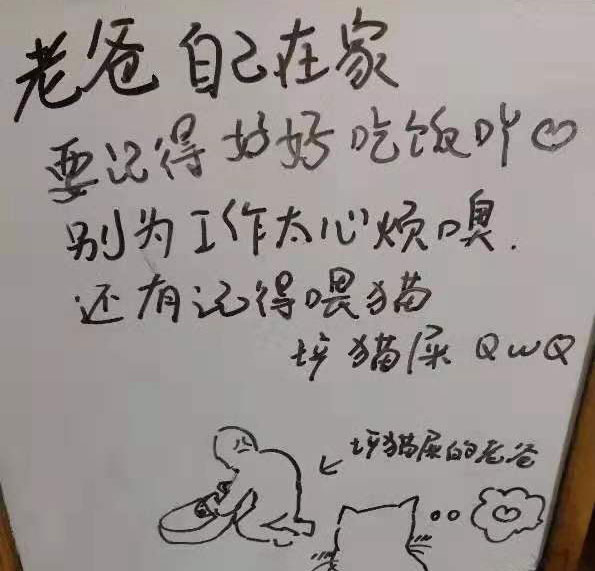 老爸自己在家
要记得好好吃饭吖♡
别为工作太心烦噢.
还有记得喂猫
猫屎 QwQ
猫屎的老爸